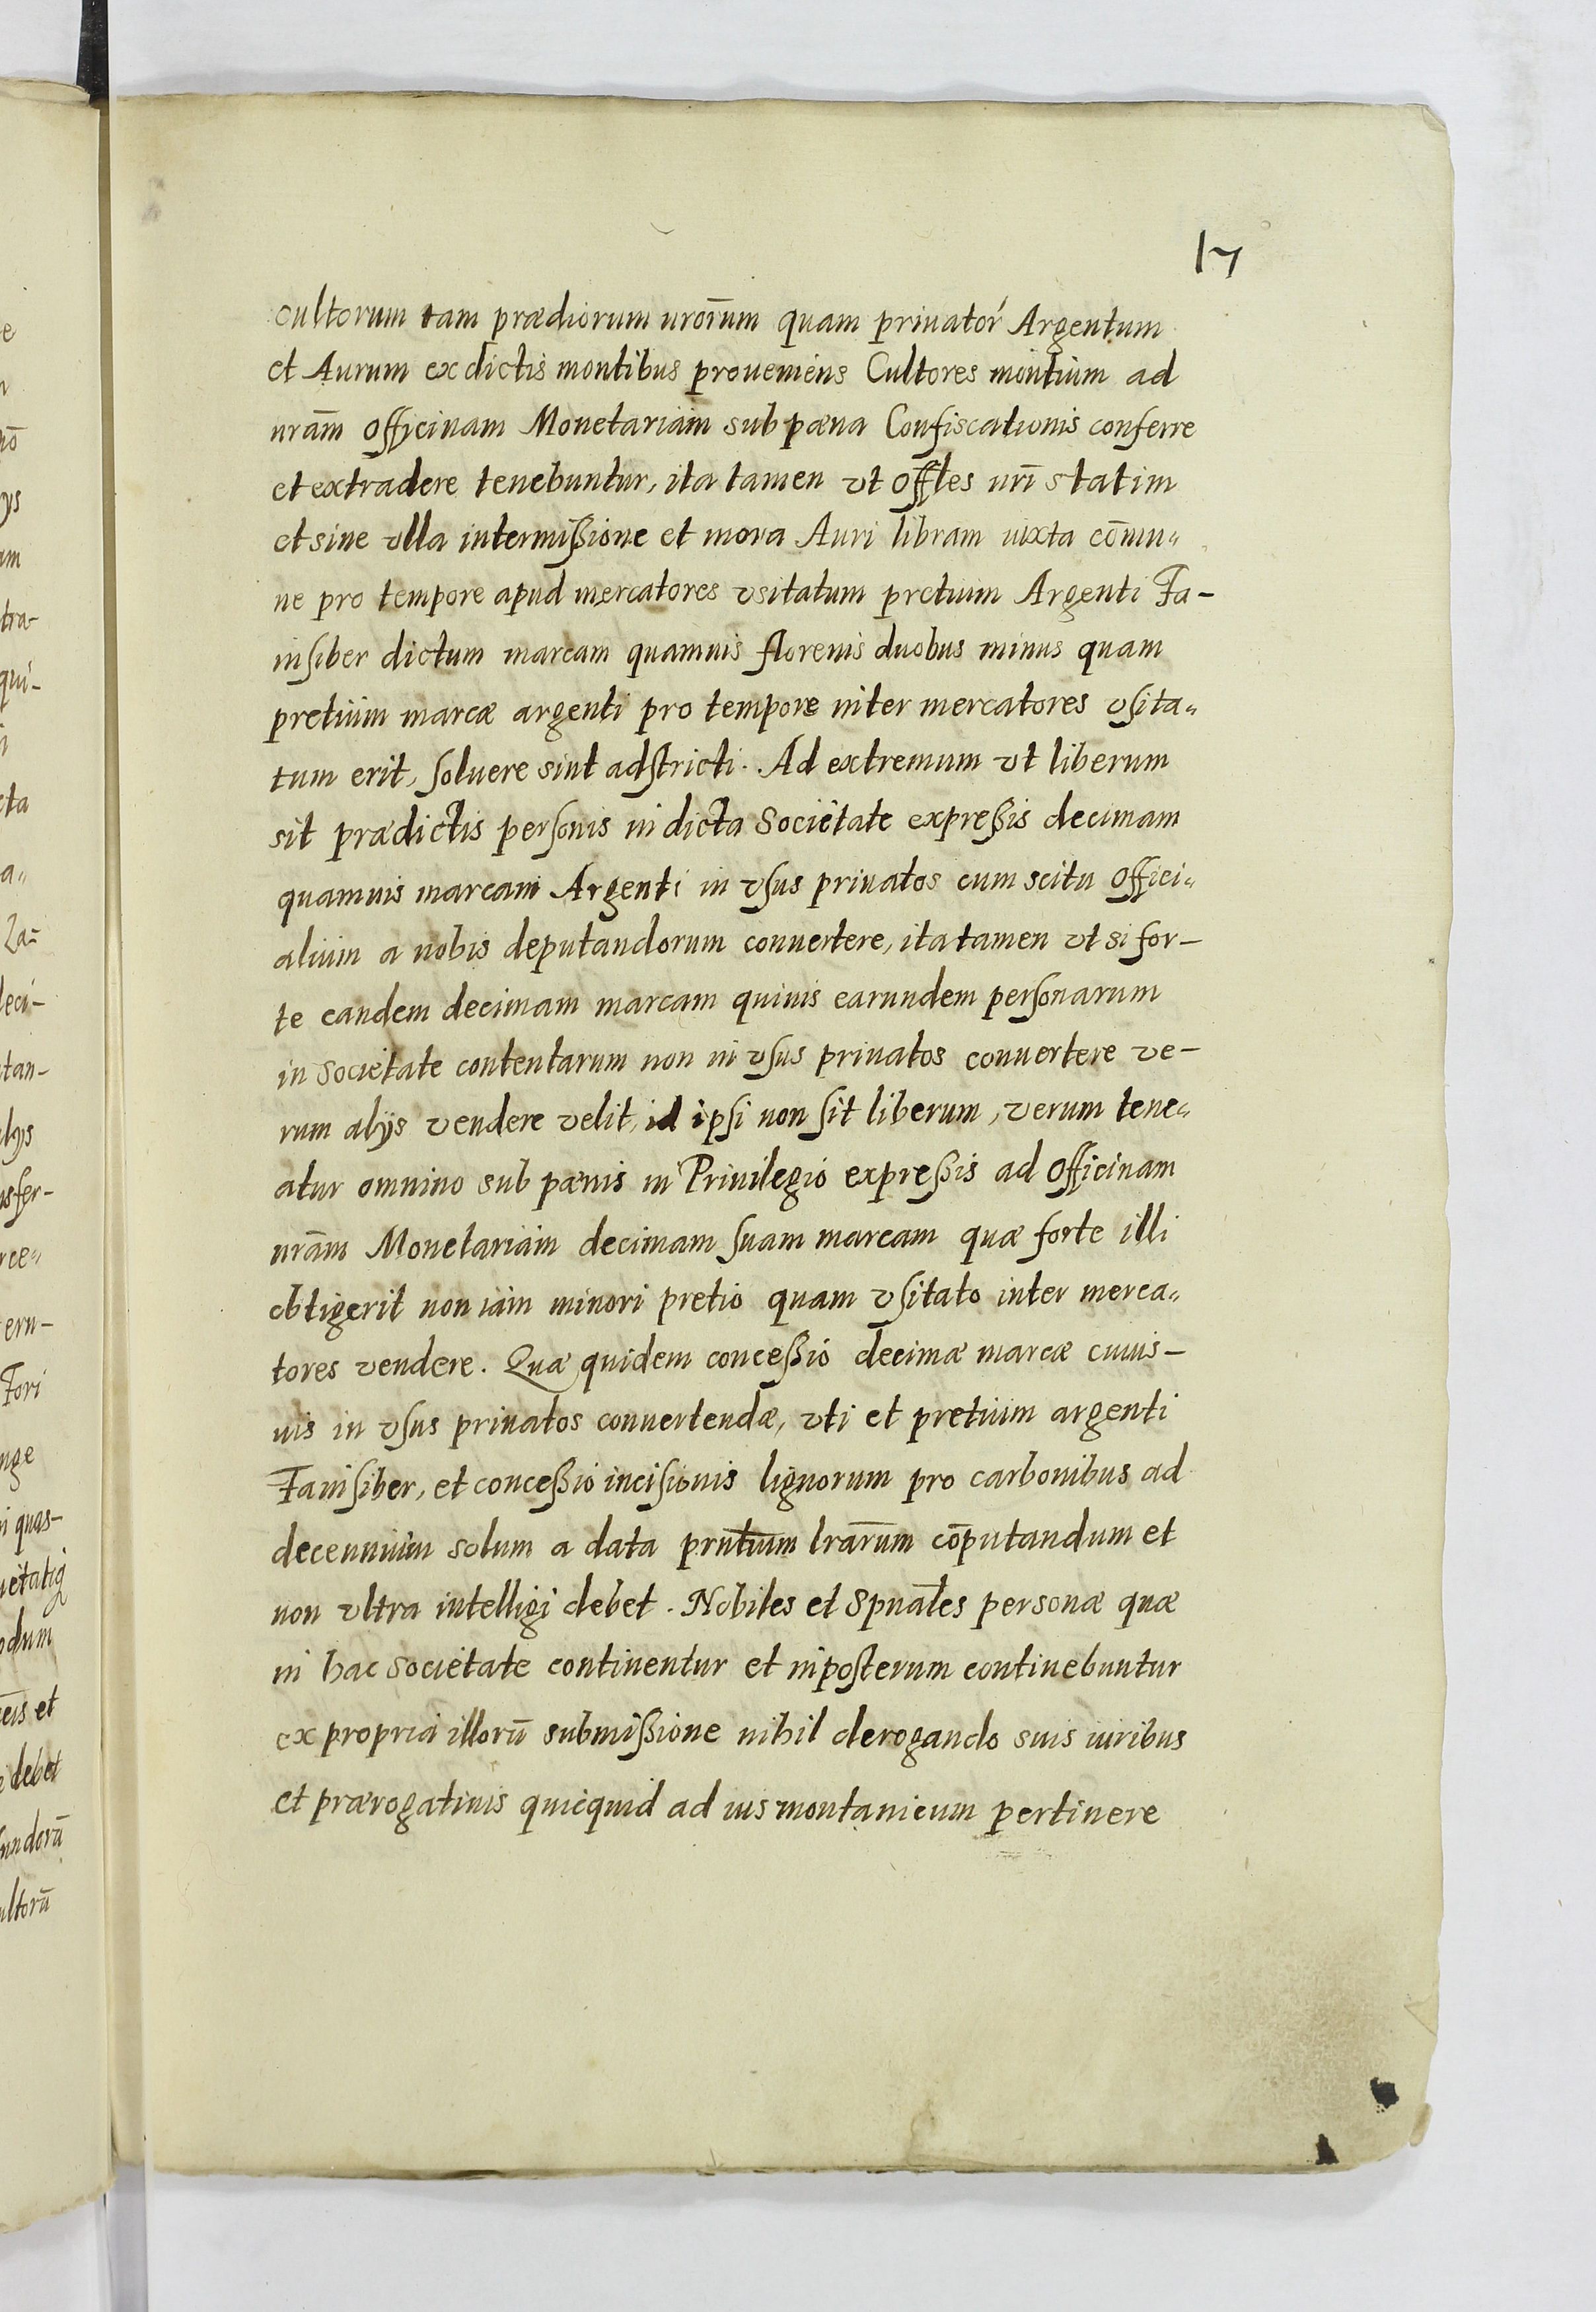 17
cultorum tam prædiorum nrōrum quam priuator Argentum
et Aurum ex dictis montibus proueniens Cultores montium ad
nrām Officinam Monetariam sub pæna Confiscationis conferre
et extradere tenebuntur, ita tamen vt Offles nrī statim
et sine vlla intermißione et mora Auri libram iuxta cōmu„
ne pro tempore apud mercatores vsitatum pretium Argenti Fa-
insiber dictum marcam quamuis florenis duobus minus quam
pretium marcæ argenti pro tempore inter mercatores vsita„
tum erit, soluere sint adstricti. Ad extremum vt liberum
sit prædictis personis in dicta Societate expreßis decimam
quamuis marcam Argenti in vsus priuatos cum scitu Offici„
alium a nobis deputandorum conuertere, ita tamen vt si for-
te eandem decimam marcam quiuis earundem personarum
in Societate contentarum non in vsus priuatos conuertere ve-
rum alijs vendere velit, id ipsi non sit liberum, verum tene„
atur omnino sub pænis in Priuilegio expreßis ad Officinam
nrām Monetariam decimam suam marcam quæ forte illi
obtigerit non iam minori pretio quam vsitato inter merca„
tores vendere. Quæ quidem conceßio decimæ marcæ cuius-
uis in vsus priuatos conuertendæ, vti et pretium argenti
Fainsiber, et conceßio incisionis lignorum pro carbonibus ad
decennium solum a data prntium lrārum cōputandum et
non vltra intelligi debet. Nobiles et Spuāles personæ quæ
in hac Societate continentur et inposterum continebuntur
ex propria illorū submißione nihil derogando suis iuribus
et prærogatiuis quicquid ad ius montanicum pertinere